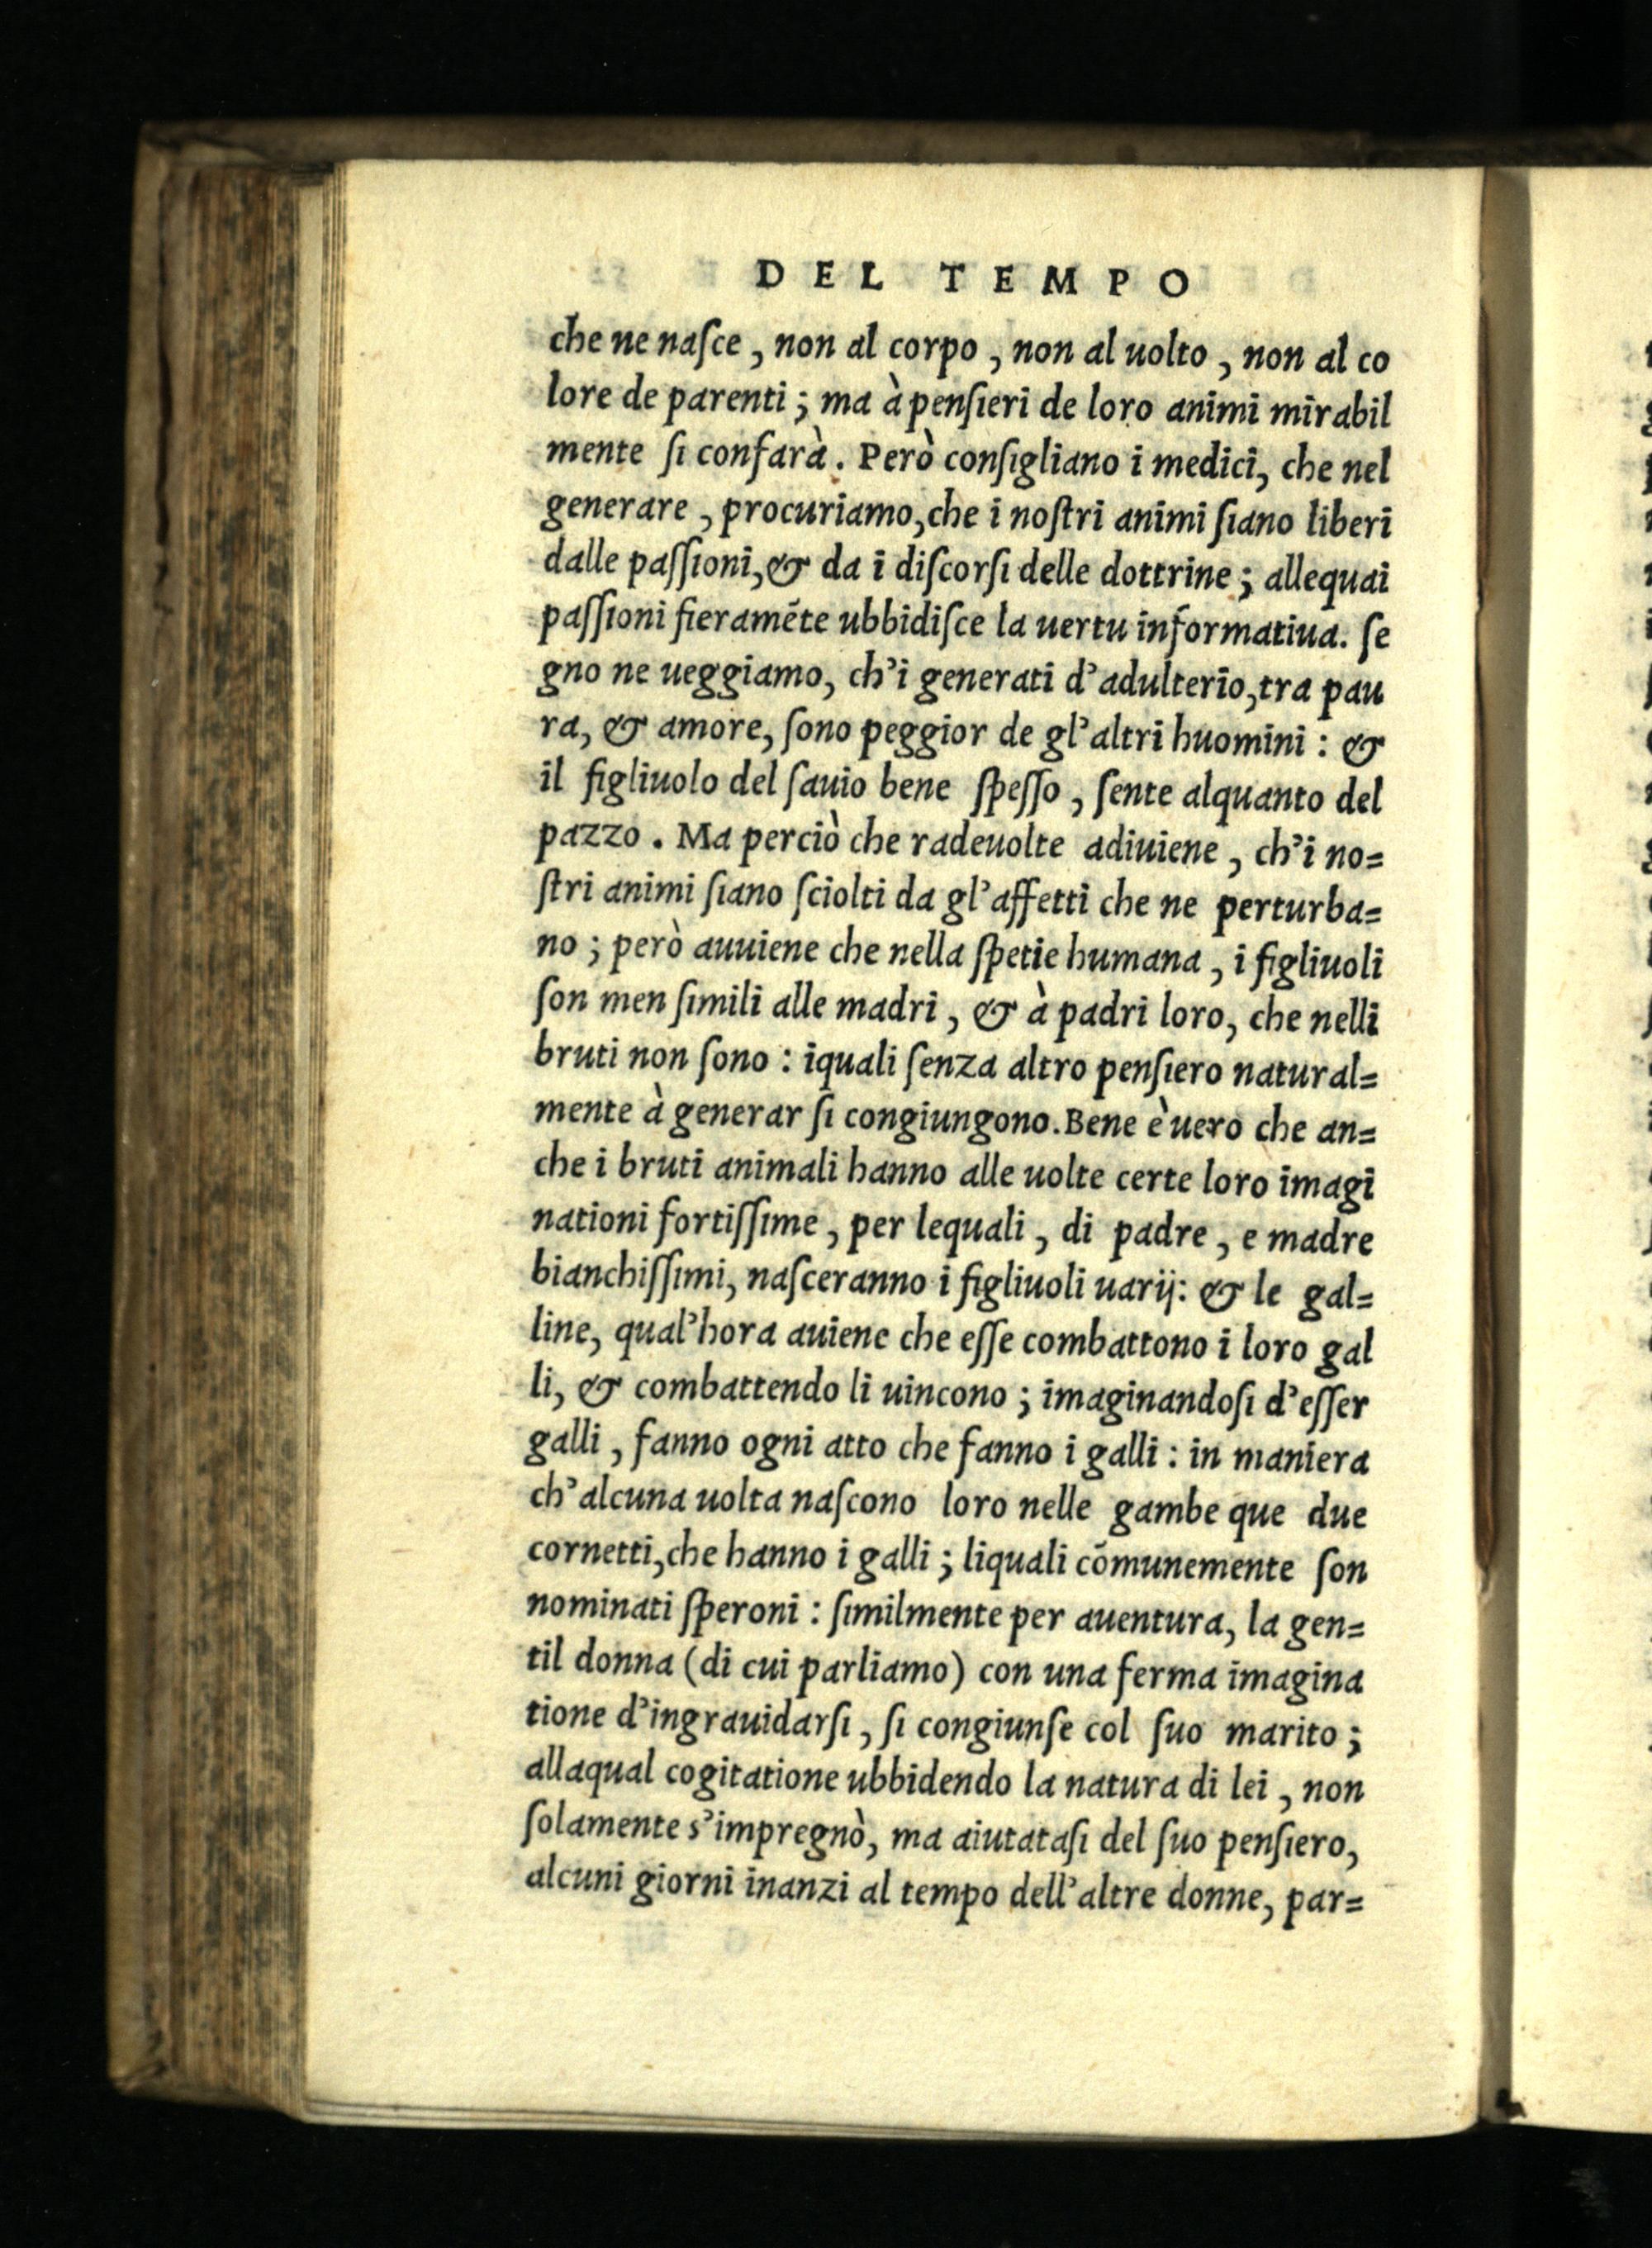 DEL TEMPO
che ne naſce, non al corpo, non al uolto, non al co
lore de parenti; ma à penſieri de loro animi mirabil
mente ſi confarà. Però conſigliano i medici, che nel
generare, procuriamo, che i noſtri animi ſiano liberi
dalle paſſioni, & da i diſcorſi delle dottrine; allequai
paſſioni fieramẽte ubbidiſce la uertu informatiua. ſe
gno ne ueggiamo, ch'i generati d'adulterio, tra pau
ra, & amore, ſono peggior de gl'altri huomini: &
il figliuolo del ſauio bene ſpeſſo, ſente alquanto del
pazzo. Ma perciò che radeuolte adiuiene, ch'i no=
ſtri animi ſiano ſciolti da gl'affetti che ne perturba=
no; però auuiene che nella ſpetie humana, i figliuoli
ſon men ſimili alle madri, & à padri loro, che nelli
bruti non ſono: iquali ſenza altro penſiero natural=
mente à generar ſi congiungono. Bene è uero che an=
che i bruti animali hanno alle uolte certe loro imagi
nationi fortiſſime, per lequali, di padre, e madre
bianchiſſimi, naſceranno i figliuoli uarij: & le gal=
line, qual'hora auiene che eſſe combattono i loro gal
li, & combattendo li uincono; imaginandoſi d'eſſer
galli, fanno ogni atto che fanno i galli: in maniera
ch'alcuna uolta naſcono loro nelle gambe que due
cornetti, che hanno i galli; liquali cõmunemente ſon
nominati ſperoni: ſimilmente per auentura, la gen=
til donna (di cui parliamo) con una ferma imagina
tione d'ingrauidarſi, ſi congiunſe col ſuo marito;
allaqual cogitatione ubbidendo la natura di lei, non
ſolamente s'impregnò, ma aiutataſi del ſuo penſiero,
alcuni giorni inanzi al tempo dell'altre donne, par=